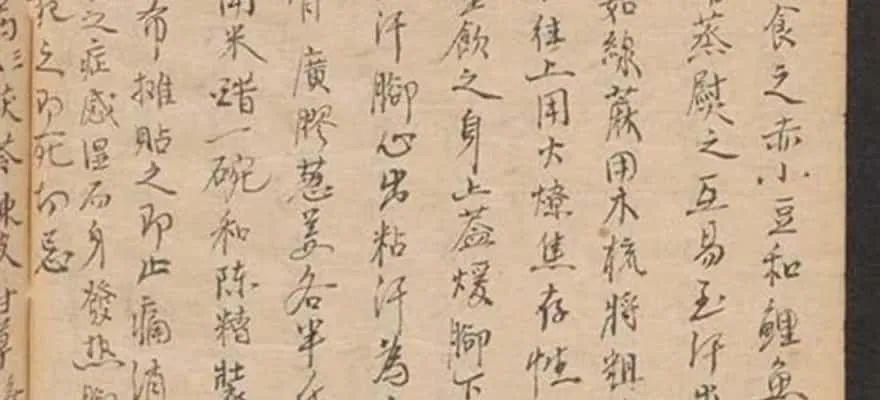 食之赤小豆和鯉魚
蒸熨之互易至汗出
如線蔴用木梳將粗
往上用火燎焦存性
飲之身上蓋煖腳下
汗腳心出粘汗為
廣膠葱姜各半斤
米醋一碗和陳糟裝
布攤貼之即止痛消
之症感湿而身發热腳
犯之即死切忌